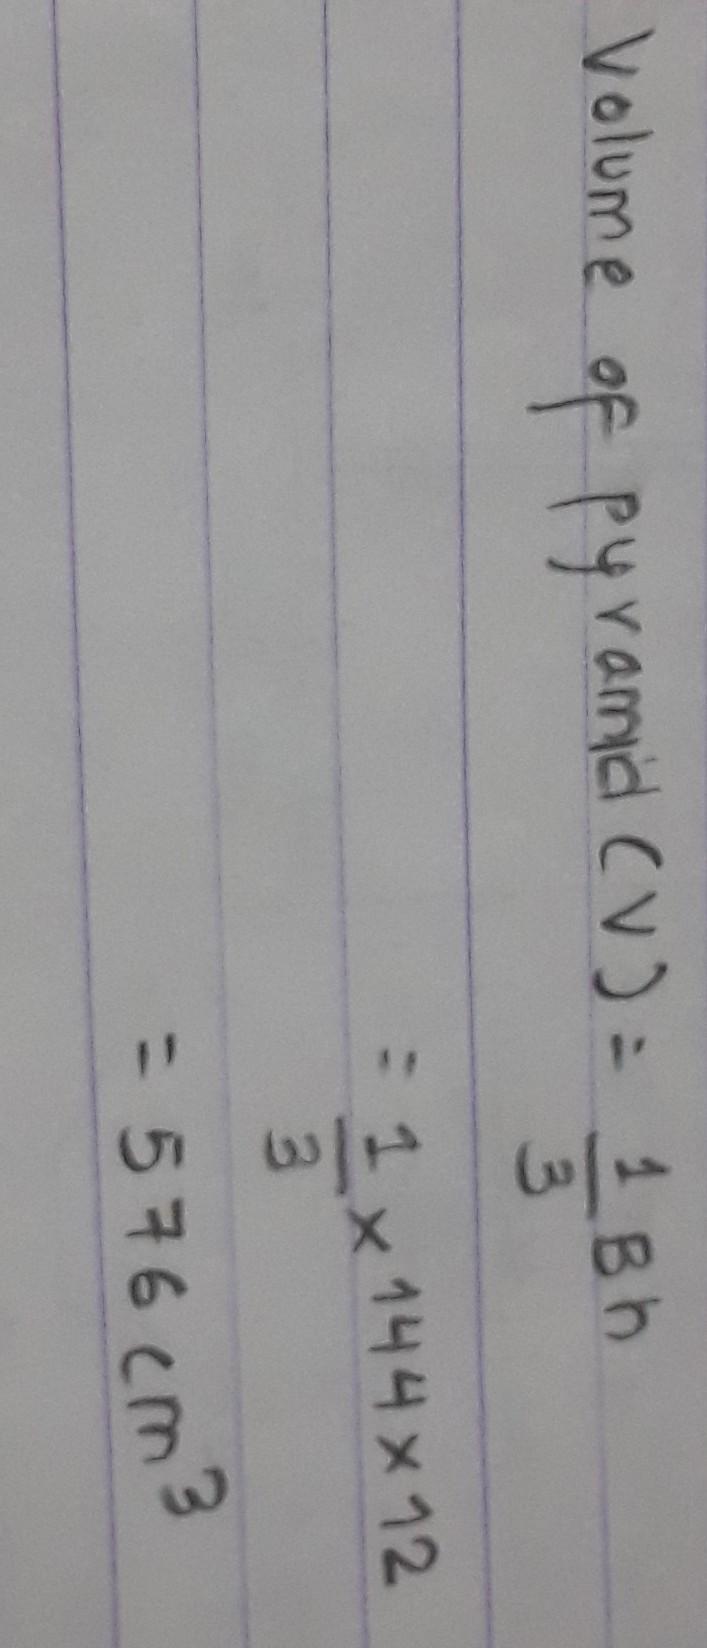 Volume of pyramid (V) = 1/3 Bh
= 1/3 × 144 × 12
= 576 cm³